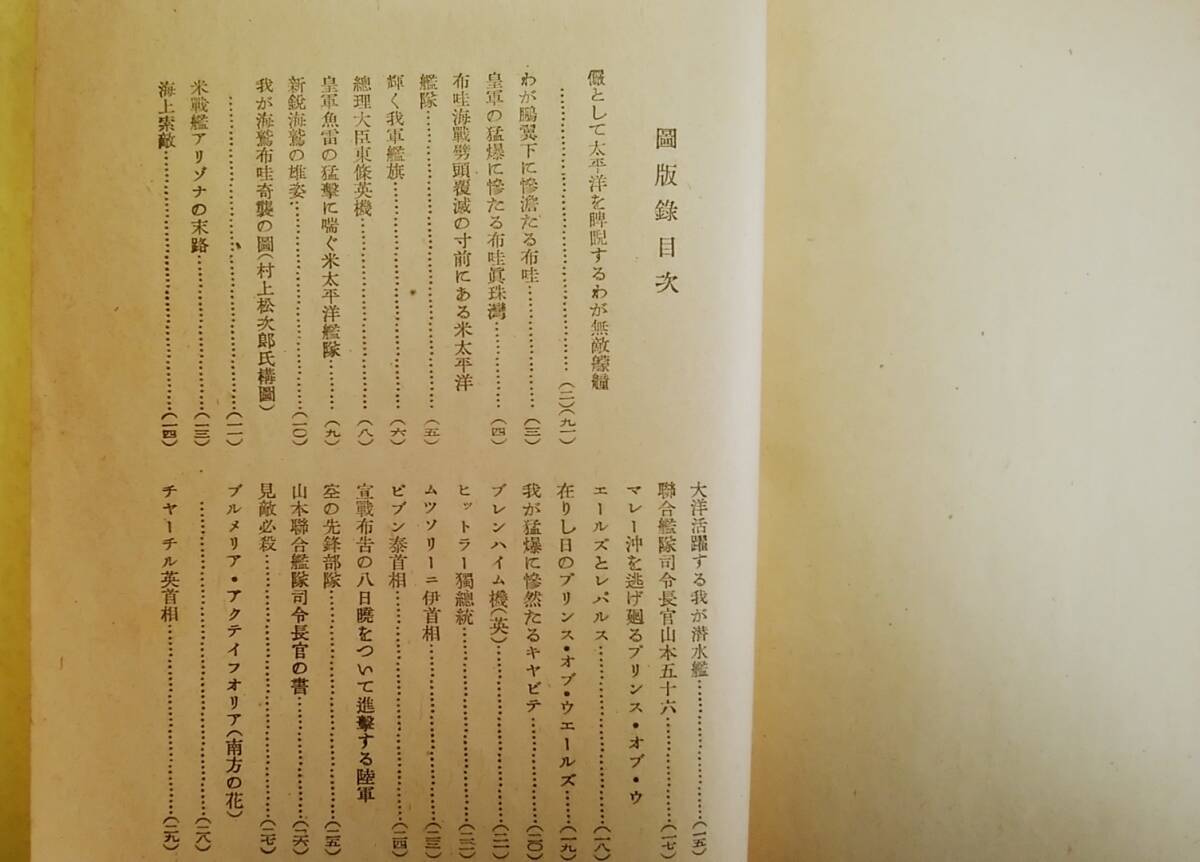 圖版錄目次
儼として太平洋を睥睨するわが無敵艨艟
…………………………(二)(九一)
わが鵬翼下に慘澹たる布哇…………(三)
皇軍の猛爆に慘たる布哇眞珠灣………(四)
布哇海戰劈頭覆滅の寸前にある米太平洋
艦隊…………………………(五)
輝く我軍艦旗…………………………(六)
總理大臣東條英機……………………(八)
皇軍魚雷の猛擊に喘ぐ米太平洋艦隊……(九)
新銳海鷲の雄姿………………………(一〇)
我が海鷲布哇奇襲の圖(村上松次郎氏構圖)
…………………………(一一)
米戰艦アリゾナの末路………………(一三)
海上索敵…………………………(一四)
大洋活躍する我が潜水艦……………(一五)
聯合艦隊司令長官山本五十六…………(一七)
マレー沖を逃げ廻るプリンス・オブ・ウ
エールズとレパルス…………………(一八)
在りし日のプリンス・オブ・ウエールズ……(一九)
我が猛爆に慘然たるキヤビテ…………(二〇)
ブレンハイム機(英)…………………(二一)
ヒットラー獨總統……………………(二二)
ムツソリーニ伊首相…………………(二三)
ピブン泰首相…………………………(二四)
宣戰布告の八日曉をついて進擊する陸軍
空の先鋒部隊…………………………(二五)
山本聯合艦隊司令長官の書……………(二六)
見敵必殺…………………………(二七)
ブルメリア・アクテイフオリア(南方の花)
…………………………(二八)
チヤーチル英首相……………………(二九)